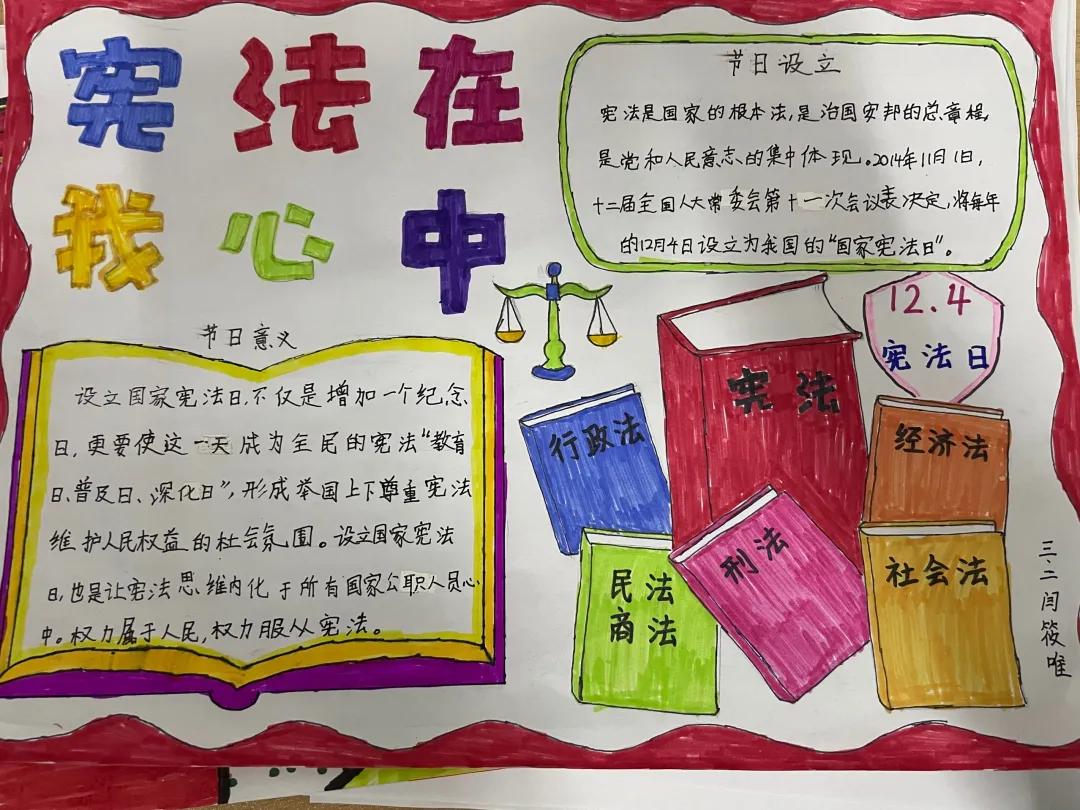 宪法在
我心中
节日设立
宪法是国家的根本法,是治国安邦的总章程,
是党和人民意志的集中体现。2014年11月1日,
十二届全国人大常委会第十一次会议表决定,将每年
的12月4日设立为我国的“国家宪法日”。
节日意义
设立国家宪法日,不仅是增加一个纪念
日,更要使这一天成为全民的宪法“教育
日、普及日、深化日”,形成举国上下尊重宪法
维护人民权益的社会氛围。设立国家宪法
日,也是让宪法思维内化于所有国家公职人员心
中。权力属于人民,权力服从宪法。
12.4
宪法日
宪法
行政法
经济法
刑法
民法
商法
社会法
三、二闫筱唯